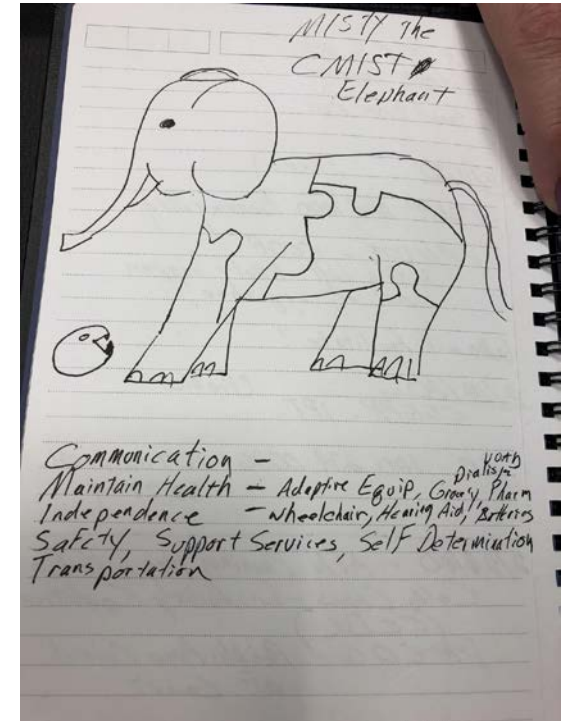 MISTY The
CMIST
Elephant
Communication -
VOAD
Dialisis
Maintain Health - Adaptive Equip, Grocery, Pharm
Independence - wheelchair, Hearing Aid, Batteries
Safety, Support Services, Self Determination
Transportation